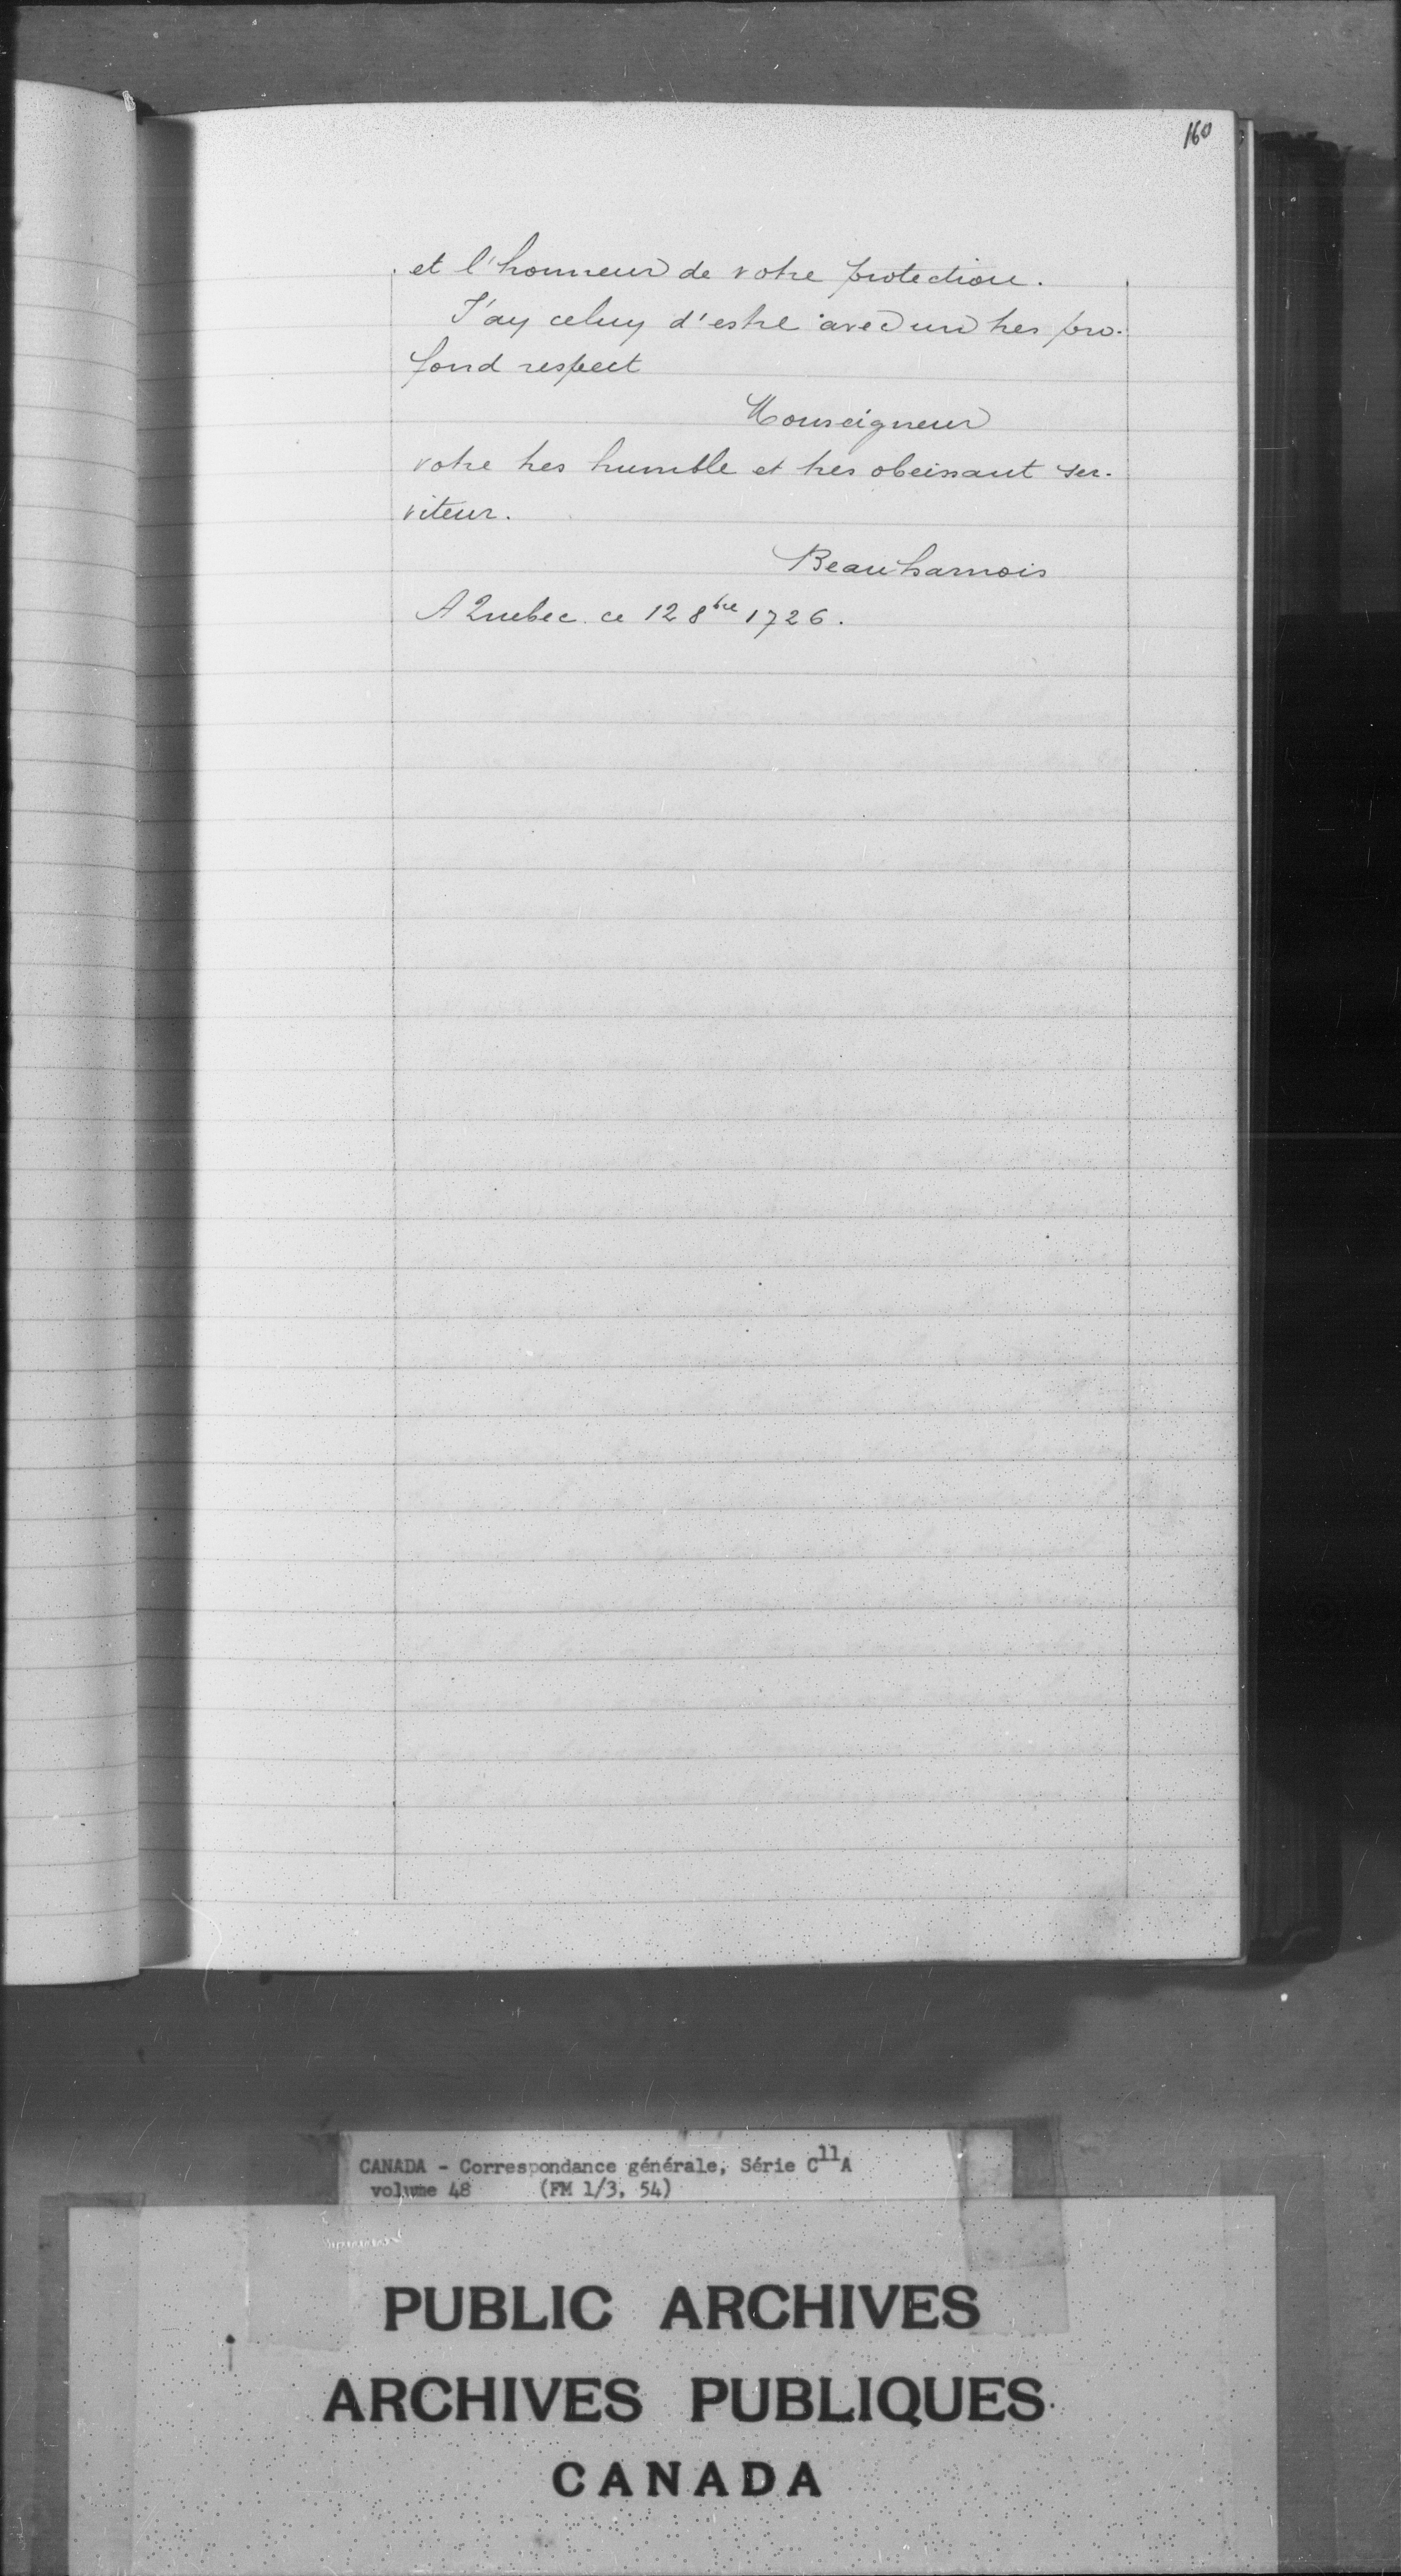 160
et l'honneur de votre protection.
J'ay celuy d'estre avec un tres pro-
fond respect
Monseigneur
votre tres humble et tres obeissant ser-
viteur.
Beauharnois
A Quebec ce 12 8bre 1726.
CANADA - Correspondance générale, Série C11A
volume 48 (FM 1/3, 54)
PUBLIC ARCHIVES
ARCHIVES PUBLIQUES
CANADA